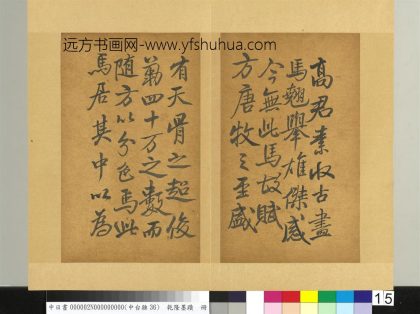 远方书画网-www.yfshuhua.com
高君素收古畫
馬翹舉雄傑感
今無此馬故賦
方唐牧之至盛
有天骨之超俊
勒四十万之數而
随方以分色焉此
馬居其中以為
000002N000000000
乾隆墨蹟 冊
15